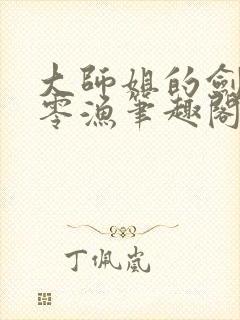 大師姐的劍
零漁筆趣閣
丁佩嵐